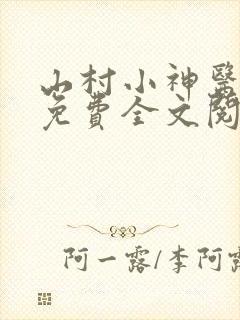 山村小神醫
免費全文閱
阿一露/李阿露